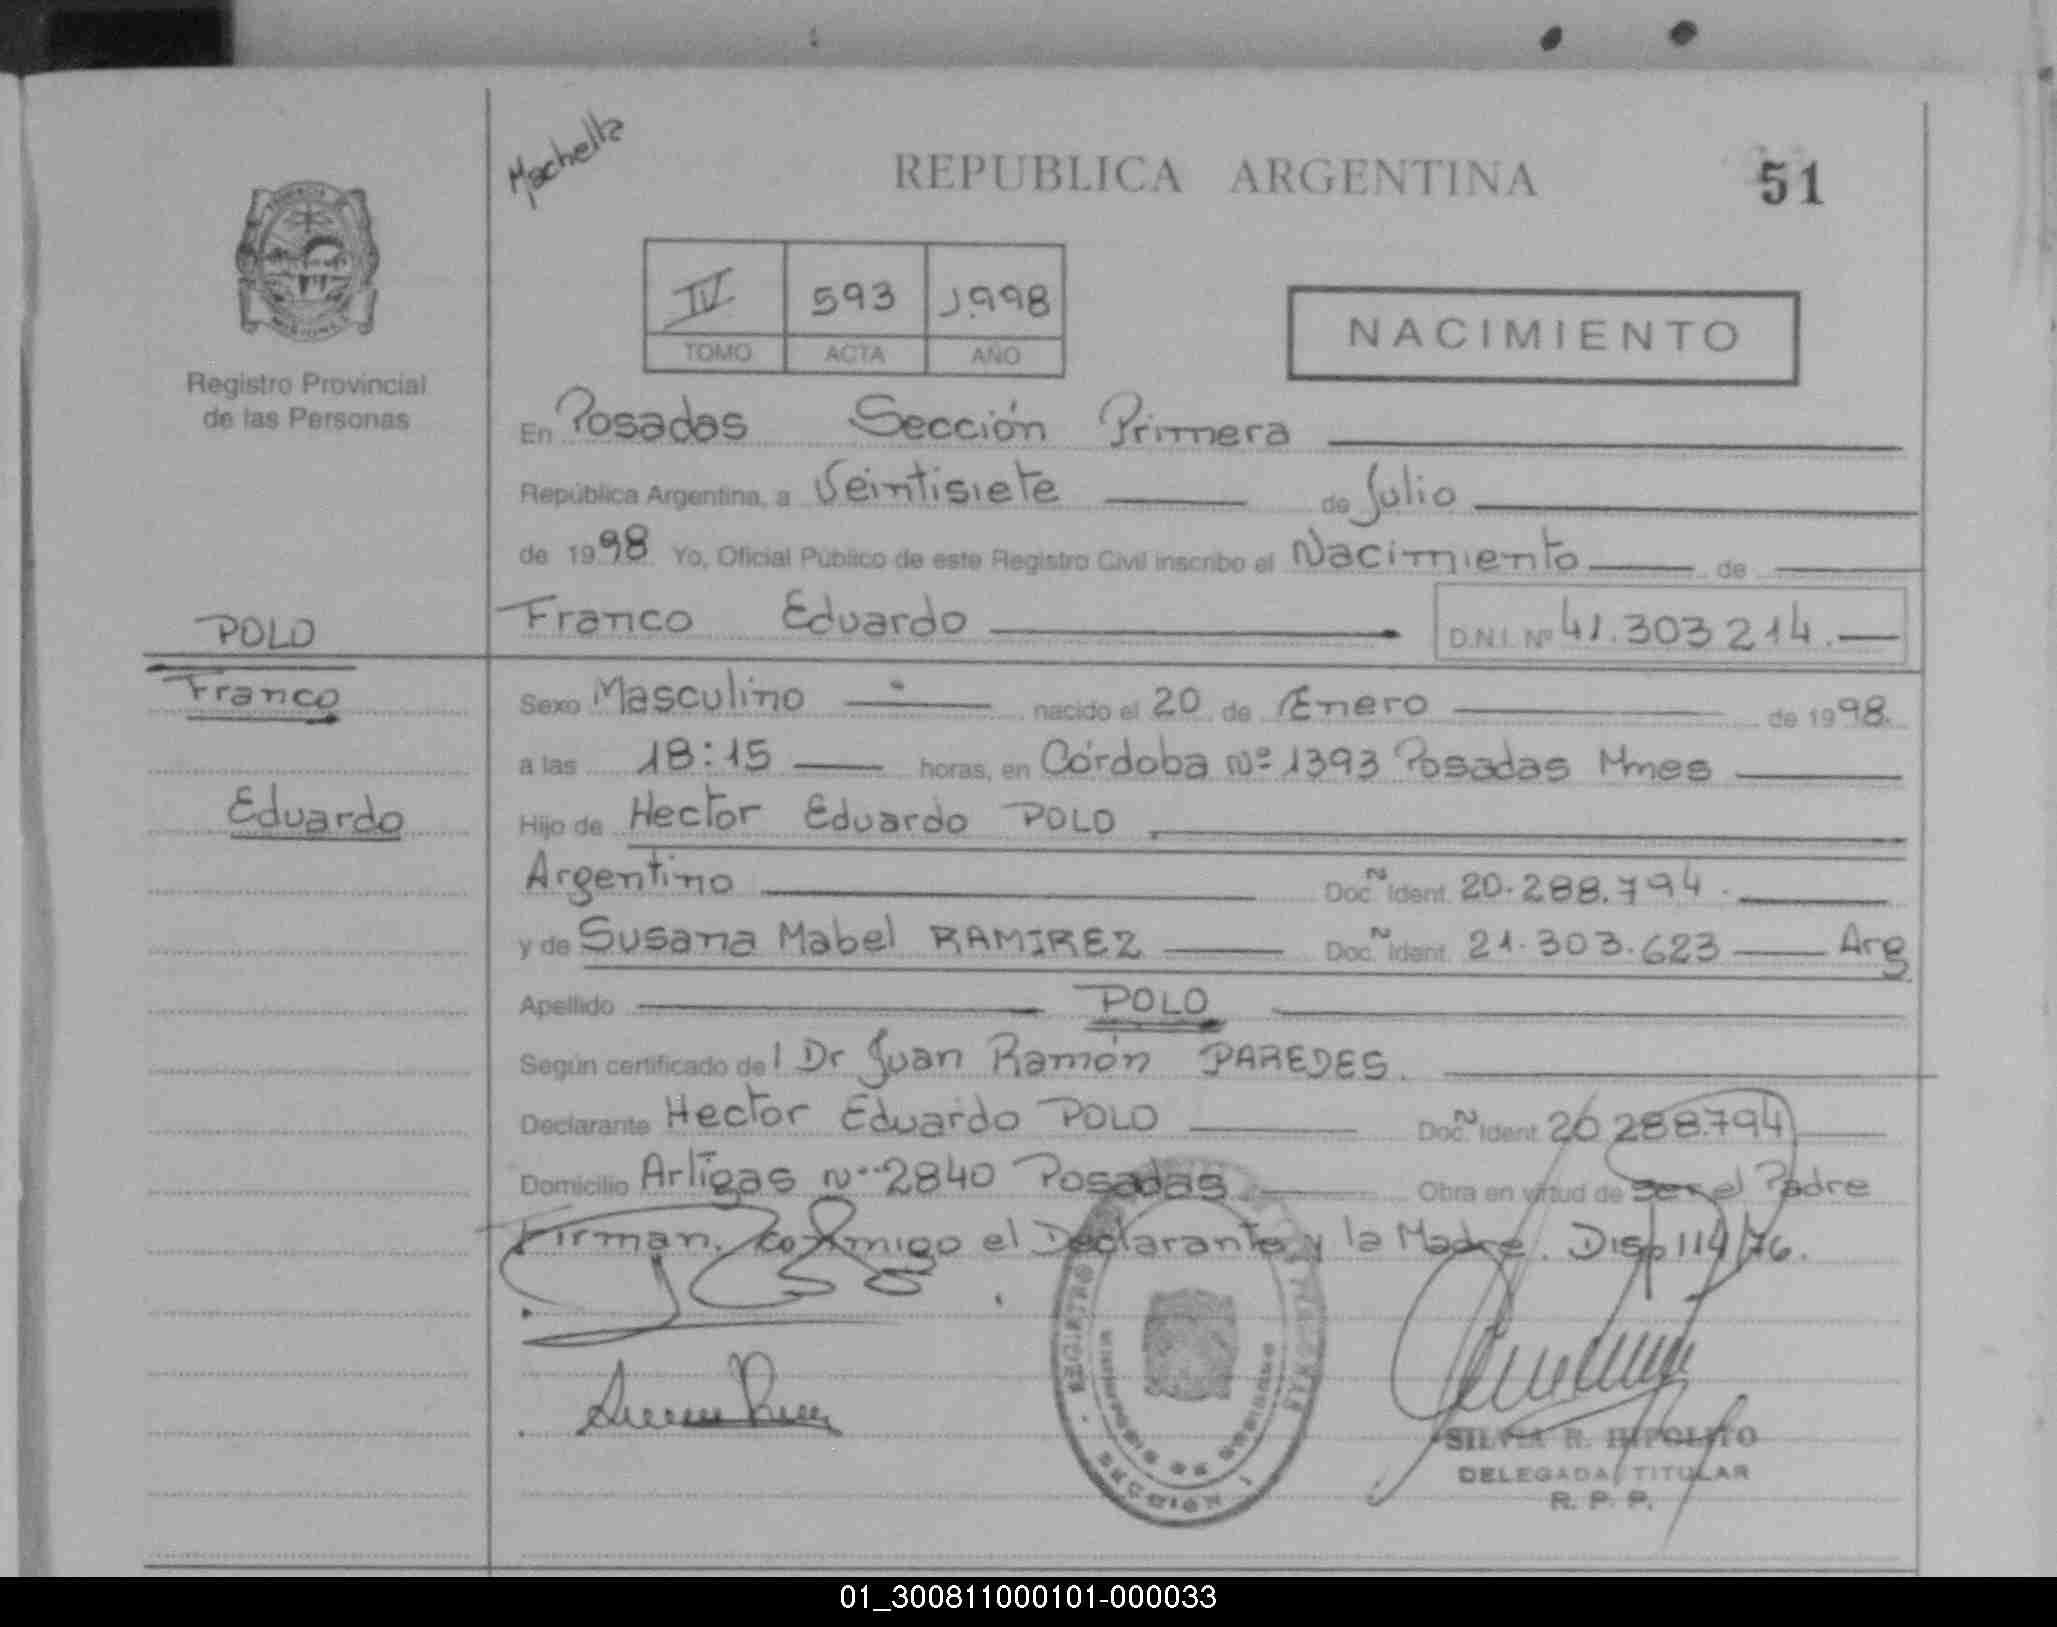 Machella
REPUBLICA ARGENTINA
51
MISIONES
Registro Provincial
de las Personas
IV 593 1.998
TOMO ACTA AÑO
NACIMIENTO
En Posadas Sección Primera
República Argentina, a Veintisiete de Julio
de 1998 Yo, Oficial Público de este Registro Civil inscribo el Nacimiento de
POLO
Franco
Eduardo
Franco Eduardo D.N.I. Nº 41.303214.
Sexo Masculino nacido el 20 de Enero de 1998.
a las 18:15 horas, en Córdoba Nº 1393 Posadas Mnes
Hijo de Hector Eduardo POLO
Argentino Doc. Ident. 20.288.794.
y de Susana Mabel RAMIREZ Doc. Ident. 21.303.623 Arg
Apellido POLO
Según certificado del Dr Juan Ramón PAREDES.
Declarante Hector Eduardo POLO Doc. Ident. 20.288.794
Domicilio Artigas Nº 2840 Posadas Obra en virtud de ser el Padre
Firman, conmigo el Declarante y la Madre. Disp 114/76.
SECCION 1
SILVIA R. HIPOLITO
DELEGADA TITULAR
R. P. P.
01_300811000101-000033